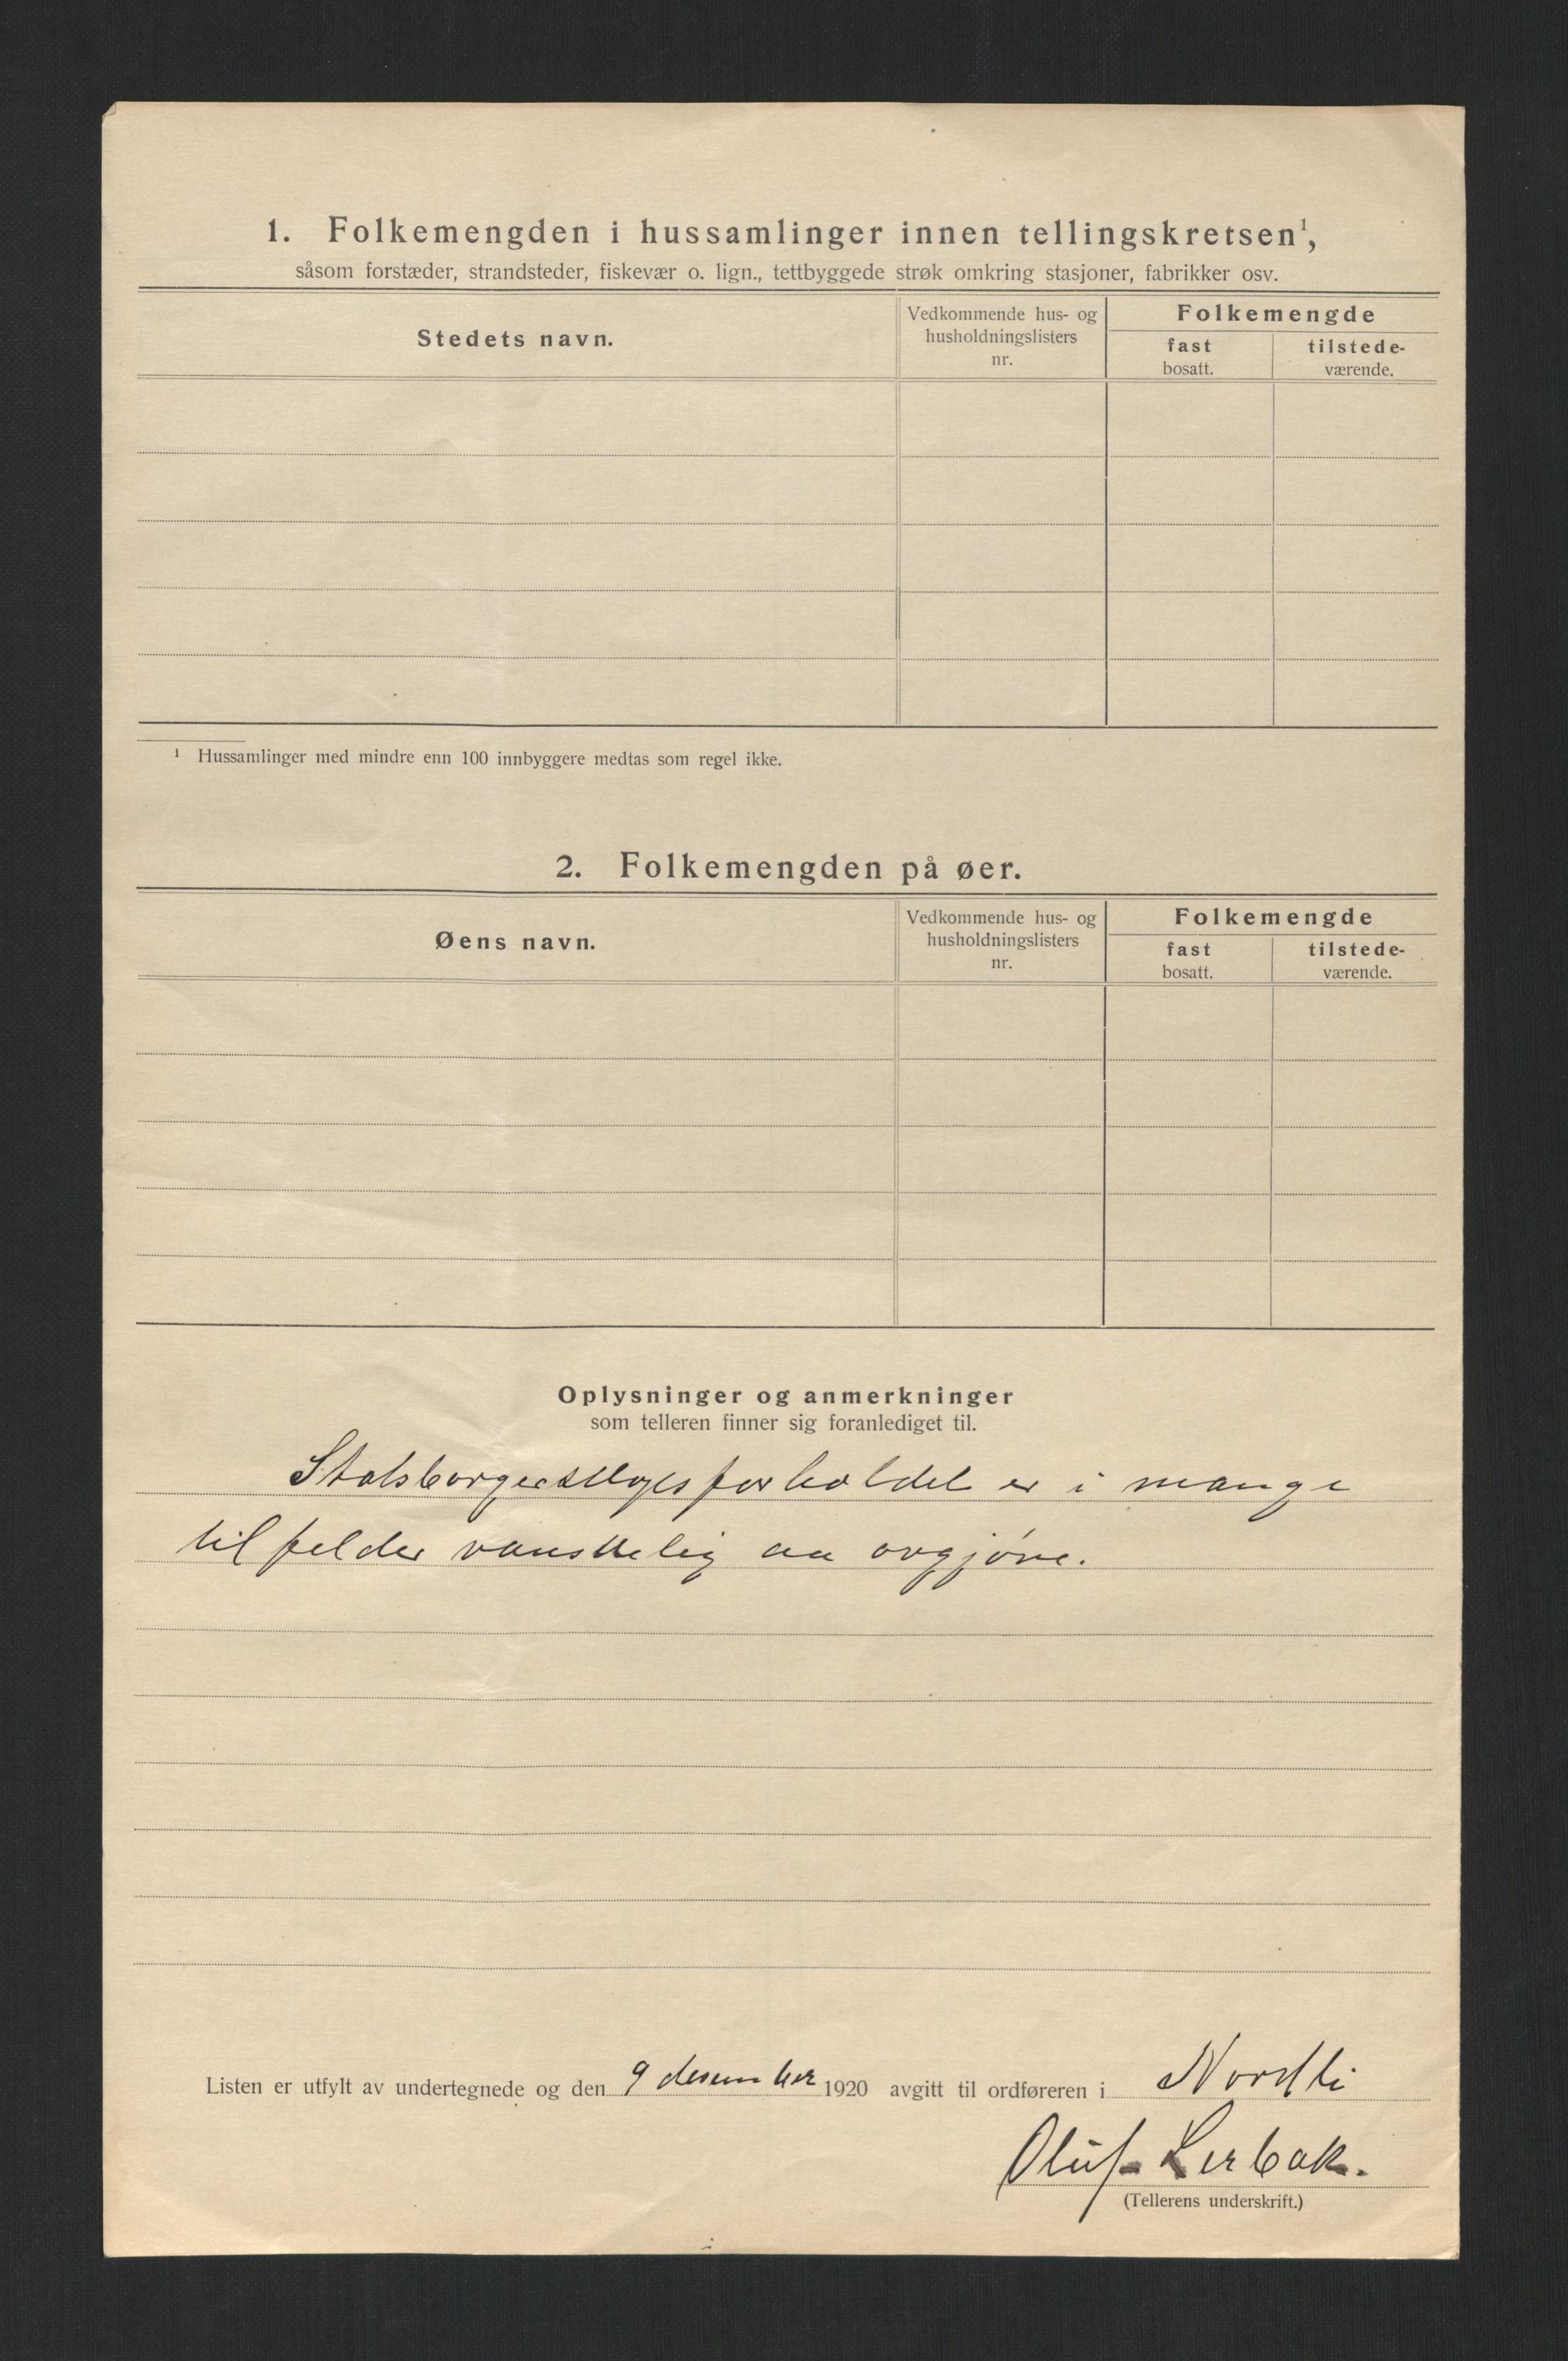 1. Folkemengden i hussamlinger innen tellingskretsen¹,
såsom forstæder, strandsteder, fiskevær o. lign., tettbyggede strøk omkring stasjoner, fabrikker osv.
Stedets navn.
Vedkommende hus- og
husholdningslisters
nr.
Folkemengde
fast
bosatt.
tilstede-
værende.
¹ Hussamlinger med mindre enn 100 innbyggere medtas som regel ikke.
2. Folkemengden på øer.
Øens navn.
Vedkommende hus- og
husholdningslisters
nr.
Folkemengde
fast
bosatt.
tilstede-
værende.
Oplysninger og anmerkninger
som telleren finner sig foranlediget til.
forholdet er i mange
tilfelder vanskelig aa avgjøre.
Listen er utfylt av undertegnede og den 9 desember 1920 avgitt til ordføreren i Nordli
Oluf Lerbak.
(Tellerens underskrift.)